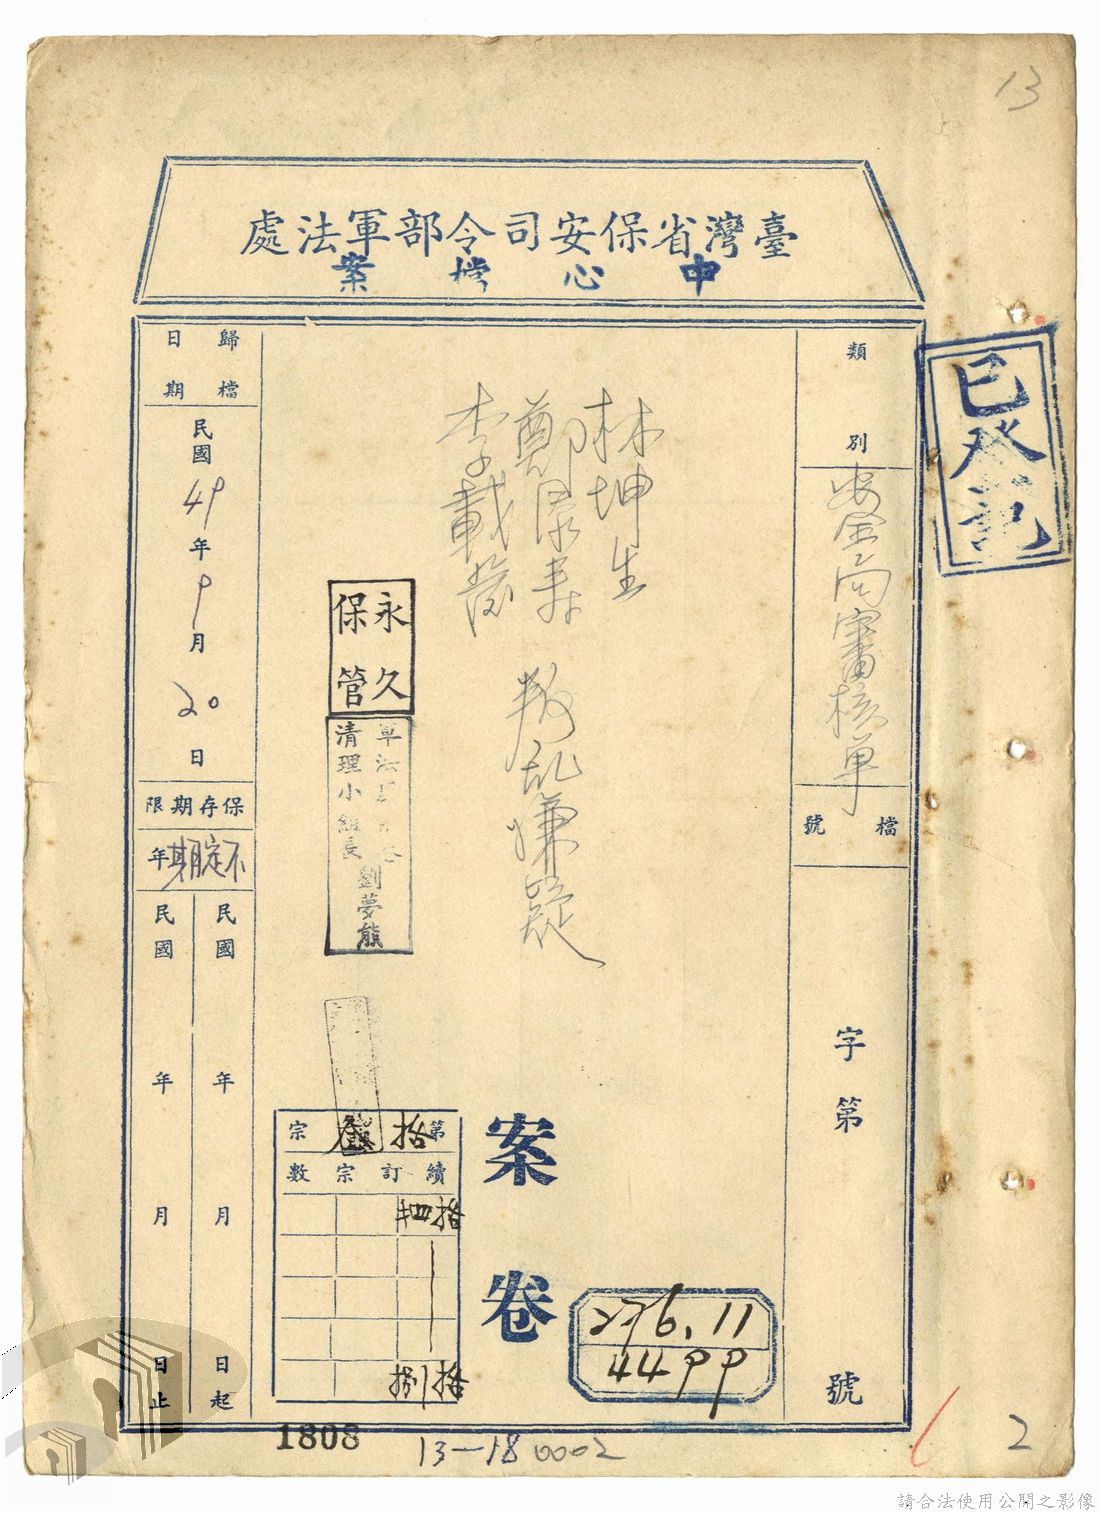 13
臺灣省保安司令部軍法處
中心檔案
已登記
類別
安全局審核單
檔號
字第
號
林坤生
李載發
叛乱嫌疑
永久
保管
清理小組長劉夢熊
案卷
276.11
4499
第拾叁宗
續訂宗數
拾肆
拾捌
歸檔
日期
民國49年9月20日
保存期限
不定期年
民國年月日起
民國年月日止
1808
13—18
0002
2
請合法使用公開之影像